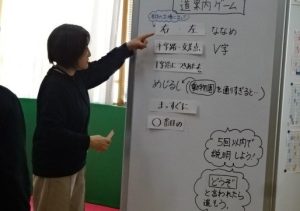 道案内ゲーム
右 ・ 左 ななめ
十字路・交差点 V字
めじるし(動物園を通りすぎると…)
まっすぐに
○番目の
5回以内で
説明しよう!
どうぞ
と言われたら
進もう。